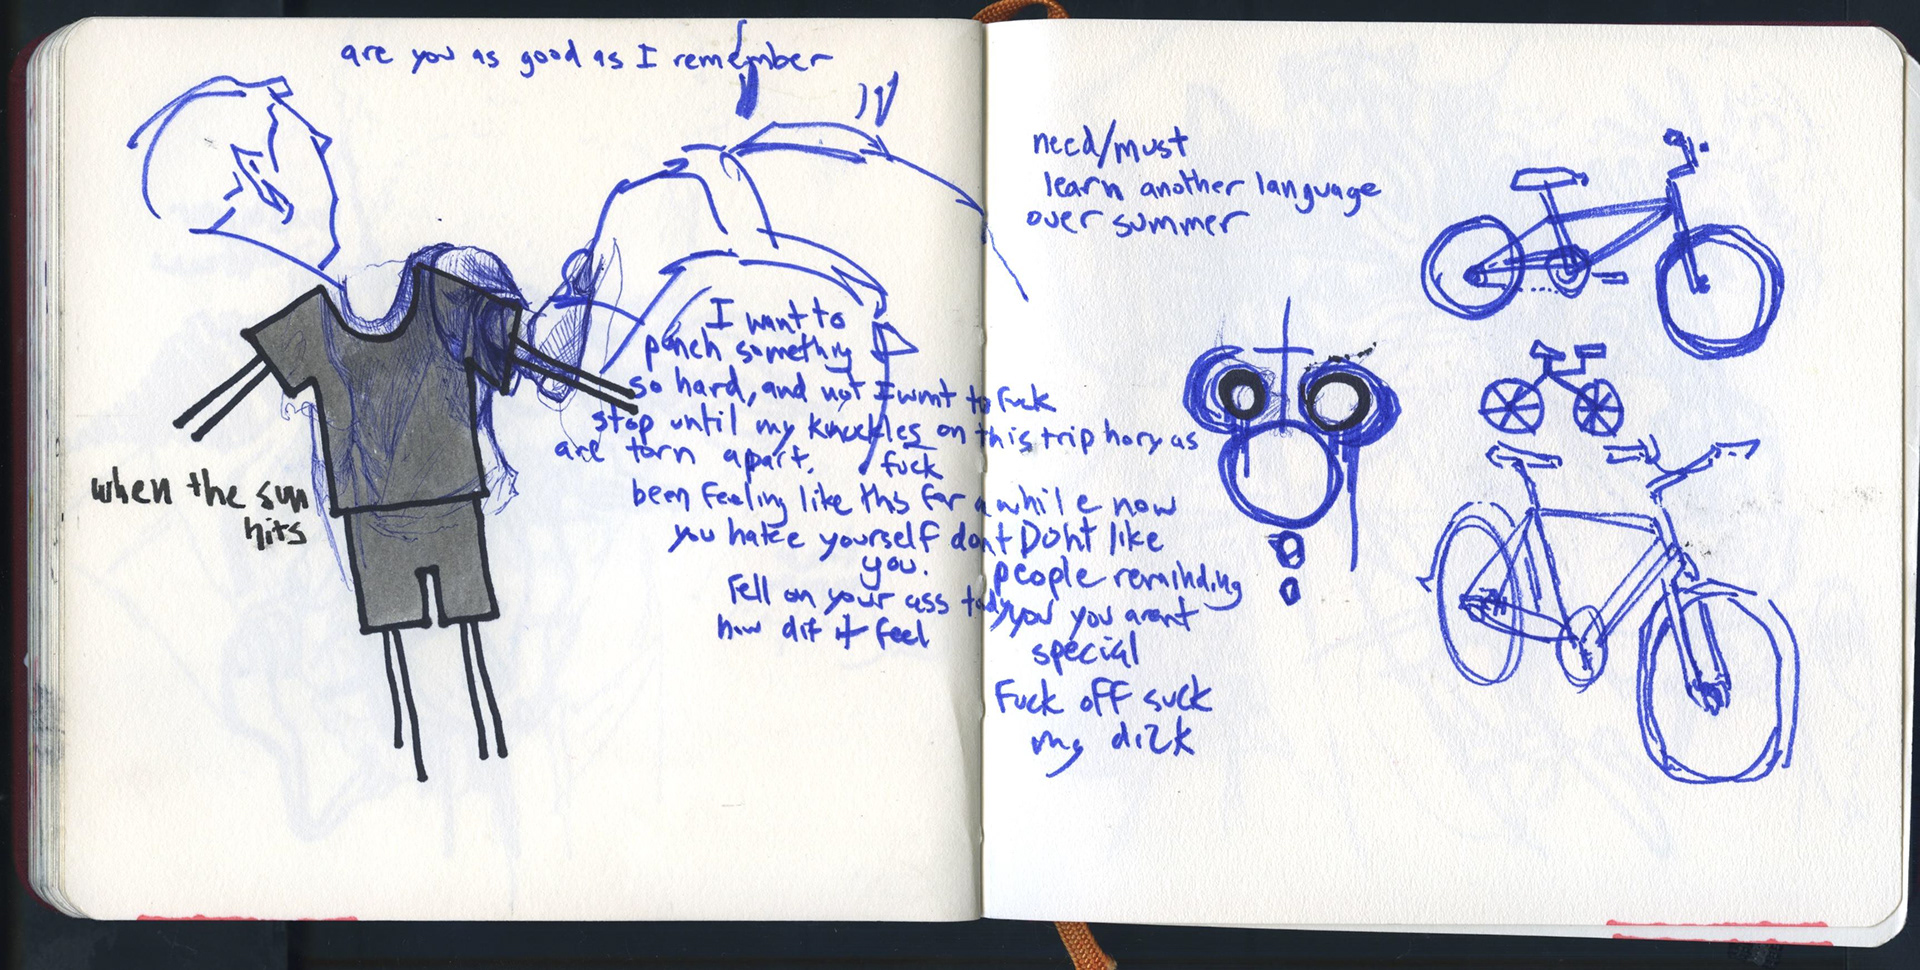 are you as good as I remember
when the sun
hits
I want to
punch somethig
so hard, and not
stop until my knuckles
are torn apart.
been feeling like ths for a while now
you hatee yourself dont
you.
Fell on your ass tody
how dit it feel
I want to fuck
on this trip hory as
fuck
Dont like
people reminding
you you arent
special
Fuck off suck
my dizk
need/must
learn another language
over summer